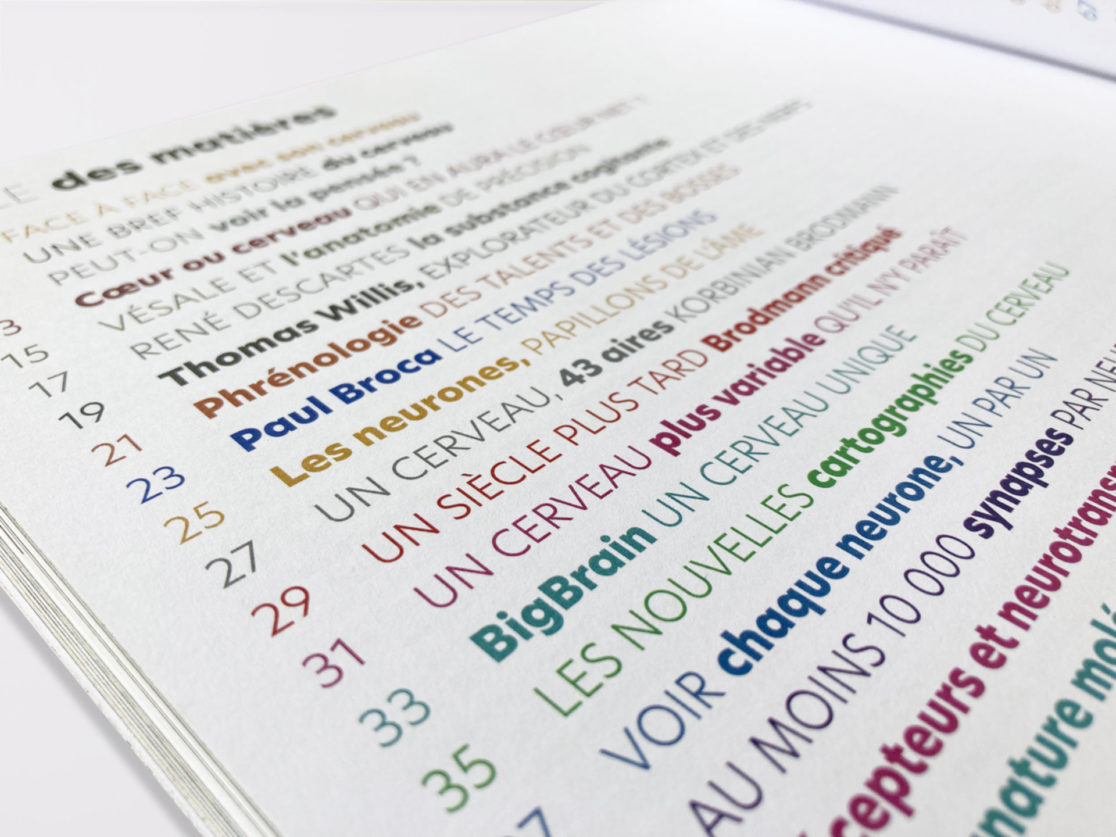 LE des matières
FACE À FACE avec son cerveau
UNE BREF HISTOIRE du cerveau
PEUT-ON voir la pensée ?
3 Cœur ou cerveau QUI EN AURA LE CŒUR NET ?
15 VÉSALE ET l'anatomie DE PRÉCISION
17 RENÉ DESCARTES la substance cogitans
19 Thomas Willis, EXPLORATEUR DU CORTEX ET DES NERFS
21 Phrénologie DES TALENTS ET DES BOSSES
23 Paul Broca LE TEMPS DES LÉSIONS
25 Les neurones, PAPILLONS DE L'ÂME
27 UN CERVEAU, 43 aires KORBINIAN BRODMANN
29 UN SIÈCLE PLUS TARD Brodmann critiqué
31 UN CERVEAU plus variable QU'IL N'Y PARAÎT
33 BigBrain UN CERVEAU UNIQUE
35 LES NOUVELLES cartographies DU CERVEAU
37 VOIR chaque neurone, UN PAR UN
AU MOINS 10 000 synapses PAR NEU
cepteurs et neurotrans
nature molé